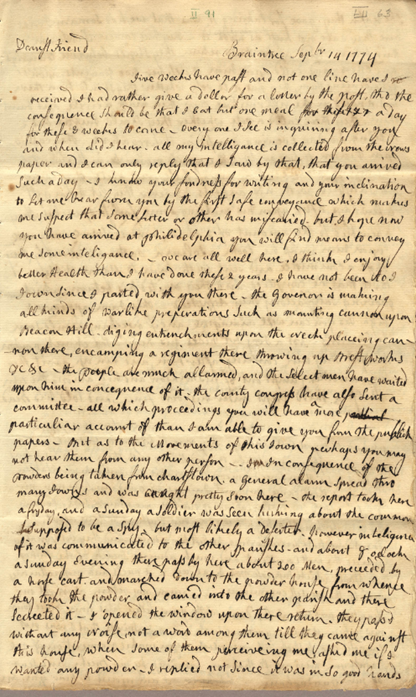 II 91
III 63
Dearest Friend
Braintree Sepbr 14 1774
five weeks have past and not one line have I
received I had rather give a dollar for a letter by the post, tho the
consequence should be that I Eat but one meal a day
for these 3 weeks to come - every one I see is inquiring after you
and when did I hear. all my intelligance is collected from the news
paper and I can only reply that I saw by that, that you arrived
such a day - I know your fondness for writing and your inclination
to let me hear from you by the first safe conveyance which makes
me suspect that some Letter or other has miscaried but I hope now
you have arrived at philidelphia you will find means to convey
me some inteligance. - we are all well here. I think I enjoy
better Health than I have done these 2 years. I have not been to
Town since I parted with you there - the Govenor is making
all kinds of warlike preperations such as mounting cannon upon
Beacon Hill. diging entrenchments upon the neck placeing can-
non there, encamping a regiment there throwing up Brest works
&c &c - the people are much allarmed, and the Select men have waited
upon him in concequence of it. the county congress have also sent a
committee - all which proceedings you will have more
particuliar account of than I am able to give you from the publick
papers - But as to the Movements of this Town perhaps you may
not hear them from any other person - In concequence of the
powders being taken from charlstown, a general alarm spread thro
many Towns and was caught pretty soon here - the report took here
a fryday, and a Sunday a soldier was seen lurking about the common
supposed to be a Spy. but most likely a deserter. however inteligence
of it was communicated to the other parishes. and about 8 o clock
a Sunday Evening there pass by here about 200 Men, preceeded by
a horse cart, and marched down to the powder house from whence
they took the powder and carried into the other parish and there
secreeted it - I opened the window upon there return. they passd
without any Noise, not a word among them till they came against
this house, when some of them perceiveing me, asked me if I
wanted any powder - I replied not since it was in so good hands